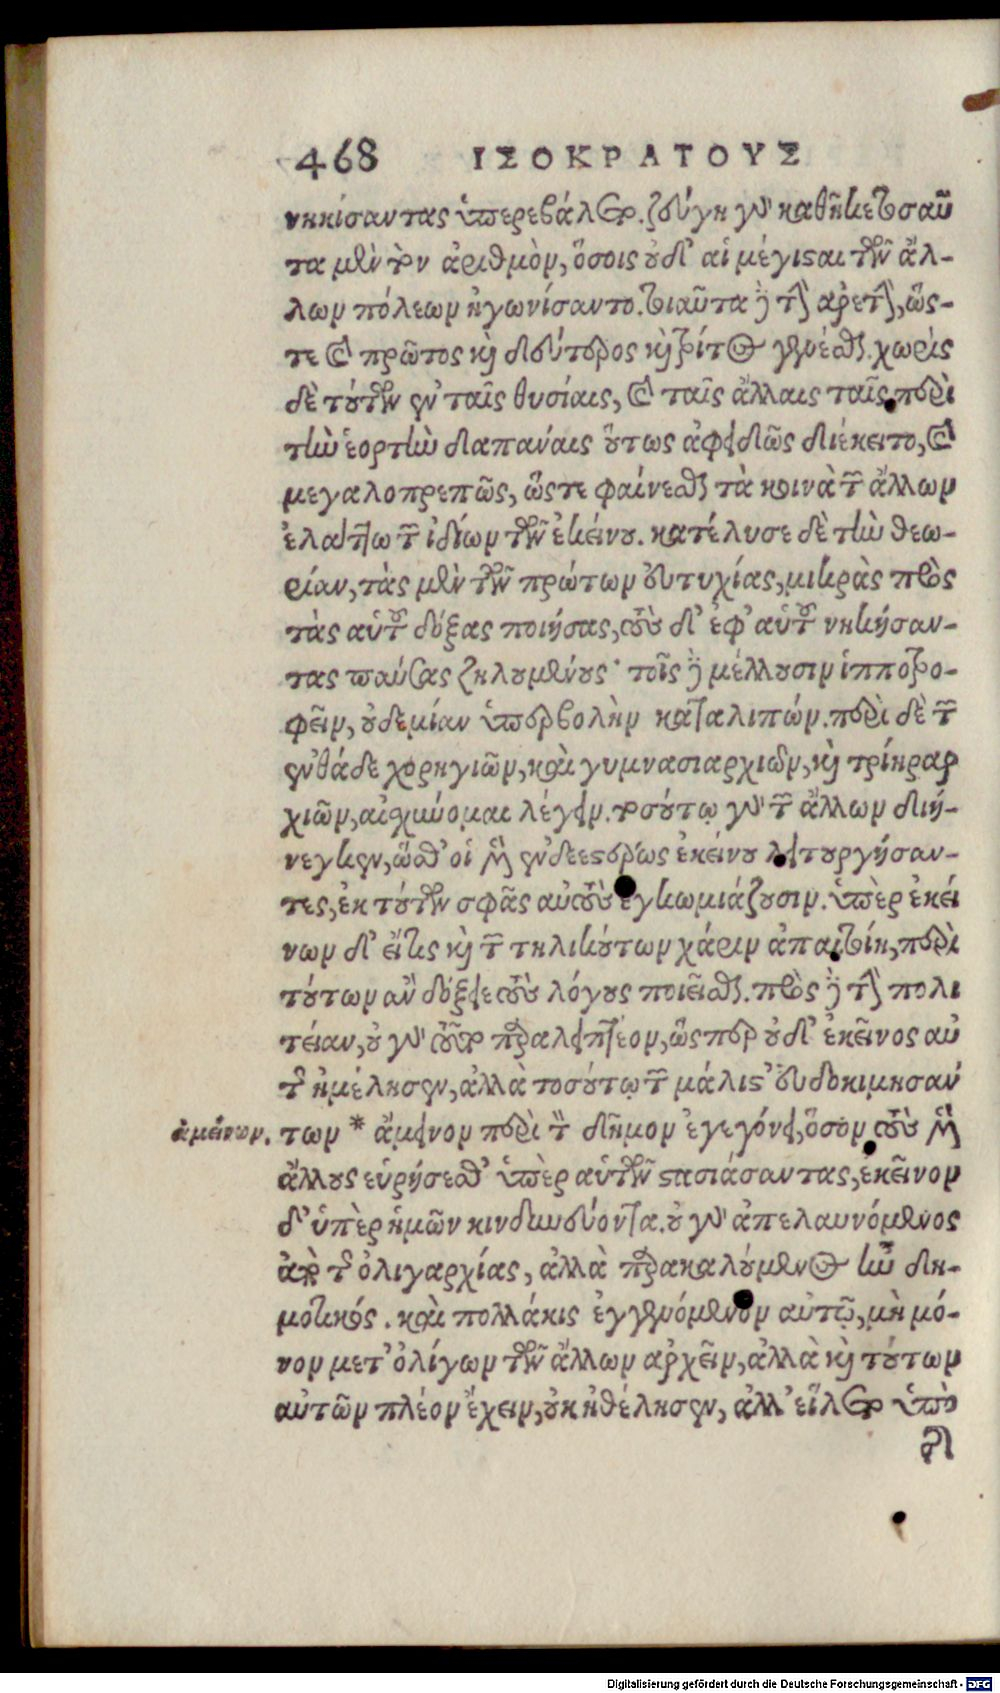 468 ΙΣΟΚΡΑΤΟΥΣ
νικήσαντας ὑπερεβάλετο. ζεύγη γὰρ καθῆκε τοσαῦ
τα μὲν τὸν ἀριθμὸν, ὅσοις οὐδ' αἱ μέγισται τῶν ἄλ-
λων πόλεων ἠγωνίσαντο. τοιαῦτα δὲ τὴν ἀρετὴν, ὥς-
τε καὶ πρῶτος καὶ δεύτερος καὶ τρίτος γενέσθαι. χωρὶς
δὲ τούτων ἐν ταῖς θυσίαις, καὶ ταῖς ἄλλαις ταῖς περὶ
τὴν ἑορτὴν δαπάναις οὕτως ἀφειδῶς διέκειτο, καὶ
μεγαλοπρεπῶς, ὥςτε φαίνεσθαι τὰ κοινὰ τῶν ἄλλων
ἐλάττω τῶν ἰδίων τῶν ἐκείνου. κατέλυσε δὲ τὴν θεω-
ρίαν, τὰς μὲν τῶν πρώτων εὐτυχίας, μικρὰς πρὸς
τὰς αὑτοῦ δόξας ποιήσας, τοὺς δ' ἐφ' αὑτοῦ νικήσαν-
τας παύσας ζηλουμένους· τοῖς δὲ μέλλουσιν ἱπποτρο-
φεῖν, οὐδεμίαν ὑπερβολὴν καταλιπών. περὶ δὲ τῶν
ἐνθάδε χορηγιῶν, καὶ γυμνασιαρχιῶν, καὶ τριηραρ
χιῶν, αἰσχύνομαι λέγειν. τοσούτῳ γὰρ τῶν ἄλλων διή-
νεγκεν, ὥσθ' οἱ μὲν ἐνδεεστέρως ἐκείνου λειτουργήσαν-
τες, ἐκ τούτων σφᾶς αὐτοὺς ἐγκωμιάζουσιν. ὑπὲρ ἐκεί
νων δ' εἴ τις καὶ τῶν τηλικούτων χάριν ἀπαιτοίη, περὶ
τούτων ἂν δόξειε τοὺς λόγους ποιεῖσθαι. πρὸς δὲ τὴν πολι
τείαν, οὐ γὰρ τοῦτο παραλειπτέον, ὥςπερ οὐδ' ἐκεῖνος αὐ
τῆς ἠμέλησεν, ἀλλὰ τοσούτῳ τῶν μάλιστ' εὐδοκιμησάν
ἀμείνων. των * ἄμεινον περὶ τὸν δῆμον ἐγεγόνει, ὅσον τοὺς μὲν
ἄλλους εὑρήσεθ' ὑπὲρ αὑτῶν στασιάσαντας, ἐκεῖνον
δ' ὑπὲρ ἡμῶν κινδυνεύοντα. οὐ γὰρ ἀπελαυνόμενος
ἀπὸ τῆς ὀλιγαρχίας, ἀλλὰ παρακαλούμενος ἦν δη-
μοτικός. καὶ πολλάκις ἐγγενόμενον αὐτῷ, μὴ μό-
νον μετ' ὀλίγων τῶν ἄλλων ἀρχεῖν, ἀλλὰ καὶ τούτων
αὐτῶν πλέον ἔχειν, οὐκ ἠθέλησεν, ἀλλ' εἵλετο ὑπὸ
Digitalisierung gefördert durch die Deutsche Forschungsgemeinschaft - DFG